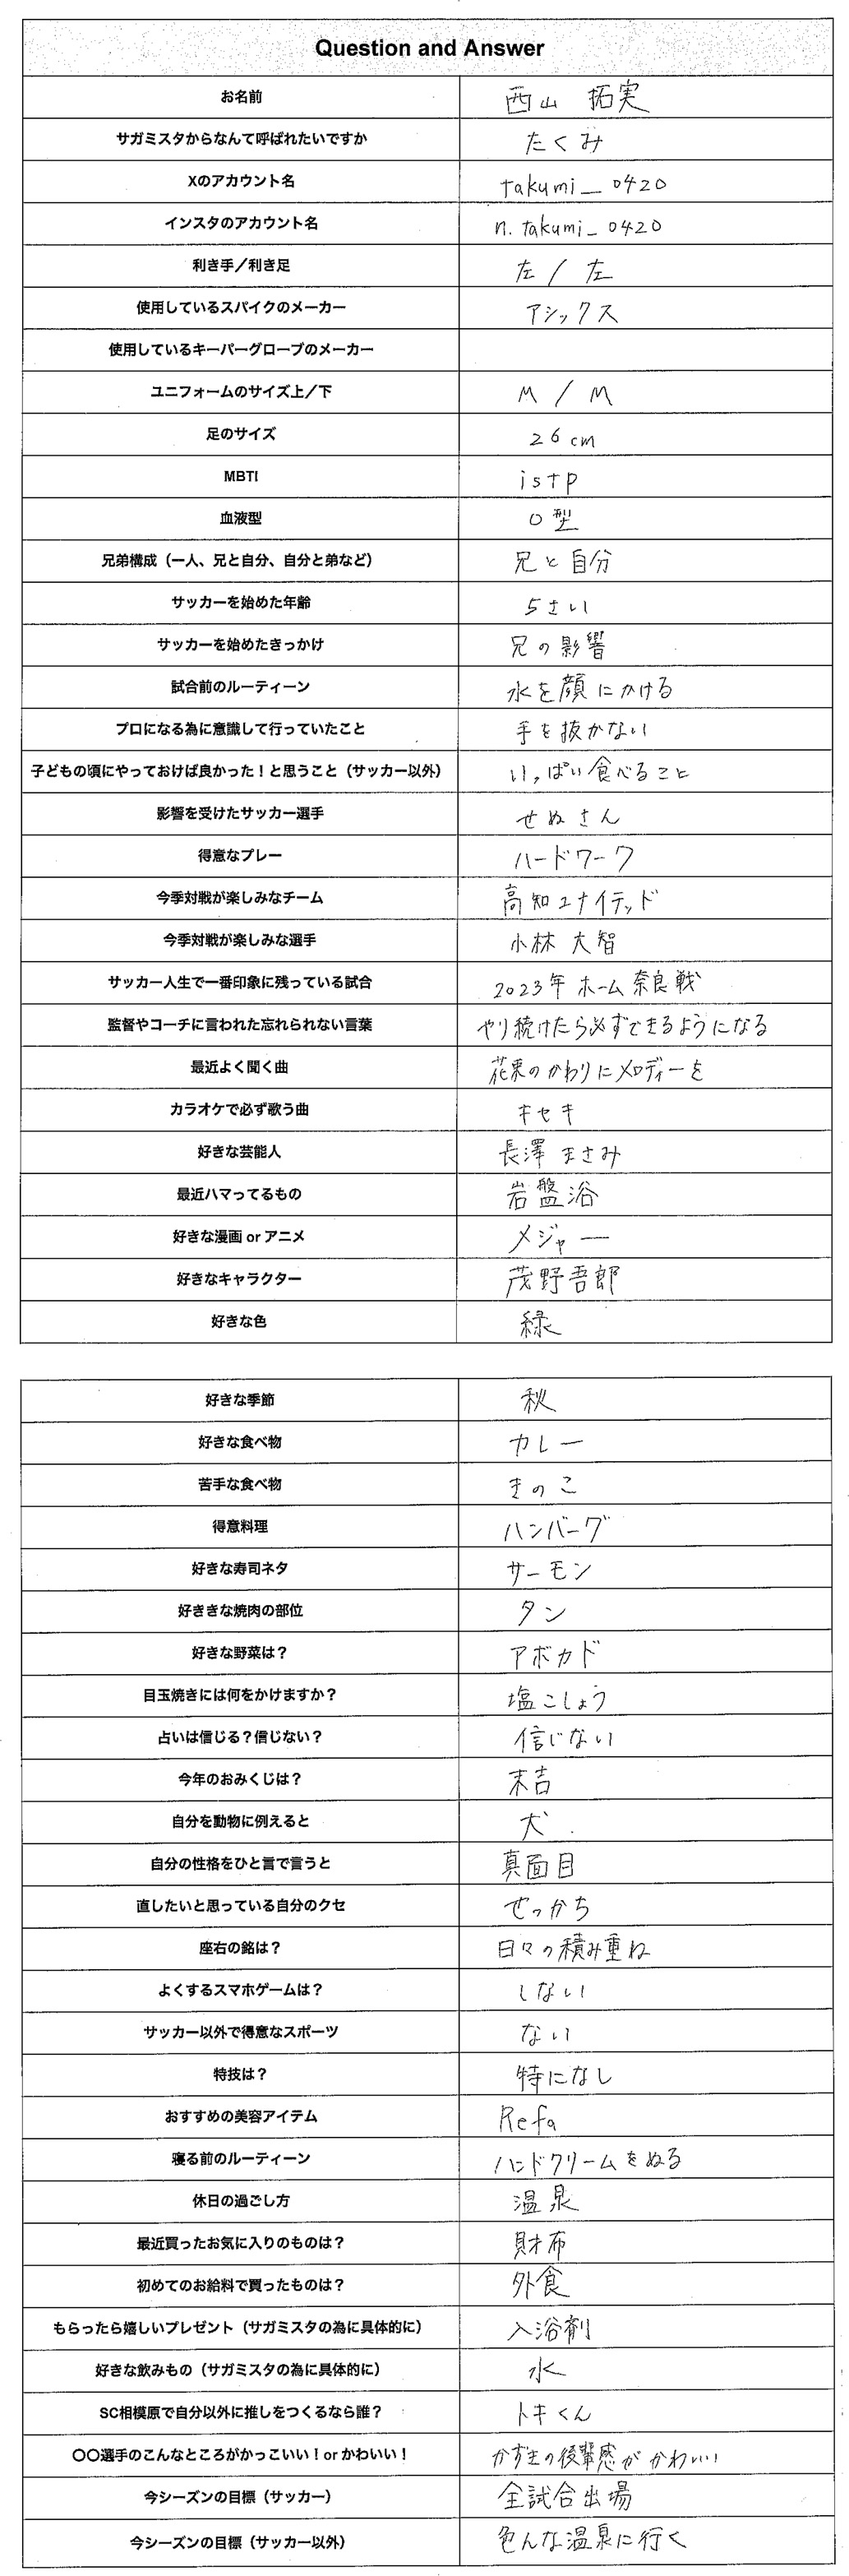 Question and Answer
お名前 西山 拓実
サガミスタからなんて呼ばれたいですか たくみ
Xのアカウント名 takumi_0420
インスタのアカウント名 n.takumi_0420
利き手／利き足 左 / 左
使用しているスパイクのメーカー アシックス
使用しているキーパーグローブのメーカー
ユニフォームのサイズ上／下 M / M
足のサイズ 26cm
MBTI istp
血液型 O型
兄弟構成（一人、兄と自分、自分と弟など） 兄と自分
サッカーを始めた年齢 5さい
サッカーを始めたきっかけ 兄の影響
試合前のルーティーン 水を顔にかける
プロになる為に意識して行っていたこと 手を抜かない
子どもの頃にやっておけば良かった！と思うこと（サッカー以外） いっぱい食べること
影響を受けたサッカー選手 せぬさん
得意なプレー ハードワーク
今季対戦が楽しみなチーム 高知ユナイテッド
今季対戦が楽しみな選手 小林 大智
サッカー人生で一番印象に残っている試合 2023年 ホーム 奈良戦
監督やコーチに言われた忘れられない言葉 やり続けたら必ずできるようになる
最近よく聞く曲 花束のかわりにメロディーを
カラオケで必ず歌う曲 キセキ
好きな芸能人 長澤まさみ
最近ハマってるもの 岩盤浴
好きな漫画 or アニメ メジャー
好きなキャラクター 茂野吾郎
好きな色 緑
好きな季節 秋
好きな食べ物 カレー
苦手な食べ物 きのこ
得意料理 ハンバーグ
好きな寿司ネタ サーモン
好ききな焼肉の部位 タン
好きな野菜は？ アボカド
目玉焼きには何をかけますか？ 塩こしょう
占いは信じる？信じない？ 信じない
今年のおみくじは？ 末吉
自分を動物に例えると 犬
自分の性格をひと言で言うと 真面目
直したいと思っている自分のクセ せっかち
座右の銘は？ 日々の積み重ね
よくするスマホゲームは？ しない
サッカー以外で得意なスポーツ ない
特技は？ 特になし
おすすめの美容アイテム Refa
寝る前のルーティーン ハンドクリームをぬる
休日の過ごし方 温泉
最近買ったお気に入りのものは？ 財布
初めてのお給料で買ったものは？ 外食
もらったら嬉しいプレゼント（サガミスタの為に具体的に） 入浴剤
好きな飲みもの（サガミスタの為に具体的に） 水
SC相模原で自分以外に推しをつくるなら誰？ トキくん
〇〇選手のこんなところがかっこいい！or かわいい！ かずきの後輩感がかわいい
今シーズンの目標（サッカー） 全試合出場
今シーズンの目標（サッカー以外） 色んな温泉に行く